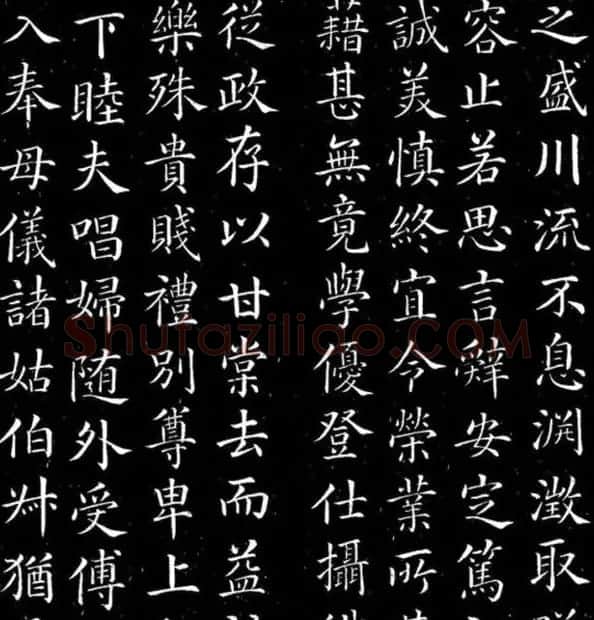 之盛川流不息淵澂取
容止若思言辭安定篤
誠美慎終宜令榮業所
藉甚無竟學優登仕攝
從政存以甘棠去而益
樂殊貴賤禮別尊卑上
下睦夫唱婦随外受傅
入奉母儀諸姑伯叔猶
Shufaziliao.COM